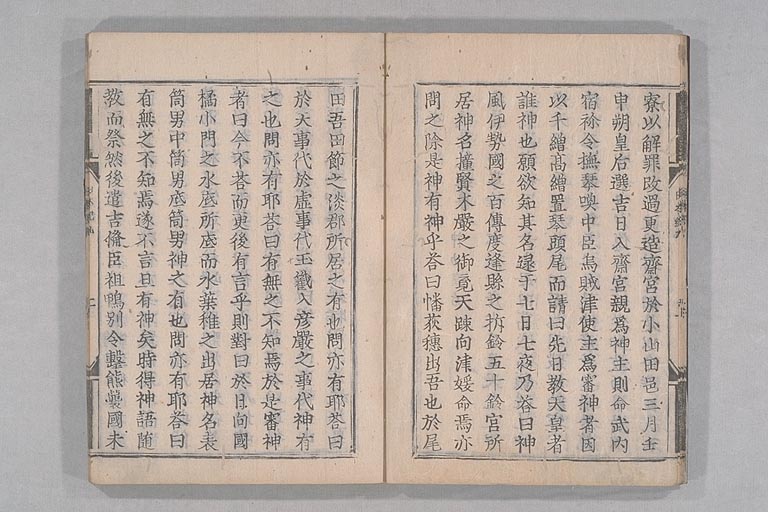 寮以解罪改過更造齋宮於小山田邑三月壬
申朔皇后選吉日入齋宮親爲神主則命武內
宿祢令撫琴喚中臣烏賊津使主爲審神者因
以千繒髙繒置琴頭尾而請曰先日教天皇者
誰神也願欲知其名逮于七日七夜乃荅曰神
風伊勢國之百傳度逢縣之拆鈴五十鈴宮所
居神名撞賢木嚴之御䰟天踈向津媛命焉亦
問之除是神有神乎荅曰幡荻穗出吾也於尾
田吾田節之淡郡所居之有也問亦有耶荅曰
於天事代於虛事代玉籤入彦嚴之事代神有
之也問亦有耶荅曰有無之不知焉於是審神
者曰今不荅而更後有言乎則對曰於日向國
橘小門之水底所底而水葉稚之出居神名表
筒男中筒男底筒男神之有也問亦有耶荅曰
有無之不知焉遂不言且有神矣時得神語隨
教而祭然後遣吉備臣祖鴨別令擊熊襲國未